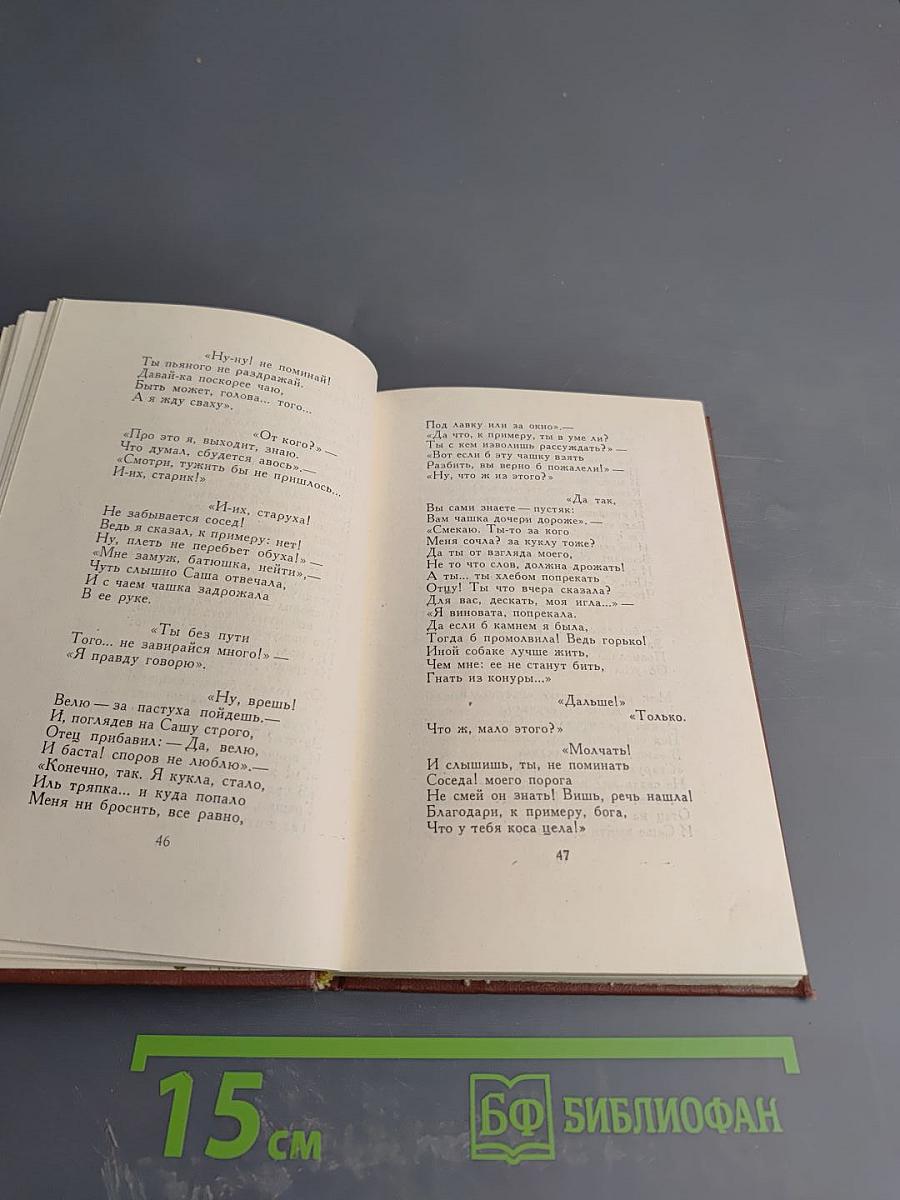 «Ну-ну! не поминай!
Ты пьяного не раздражай.
Давай-ка поскорее чаю,
Быть может, голова... того...
А я жду сваху».
«От кого?» —
«Про это я, выходит, знаю.
Что думал, сбудется авось».—
«Смотри, тужить бы не пришлось...
И-их, старик!»
«И-их, старуха!
Не забывается сосед!
Ведь я сказал, к примеру: нет!
Ну, плеть не перебьет обуха!» —
«Мне замуж, батюшка, нейти»,—
Чуть слышно Саша отвечала,
И с чаем чашка задрожала
В ее руке.
«Ты без пути
Того... не завирайся много!» —
«Я правду говорю».
«Ну, врешь!
Велю — за пастуха пойдешь.—
И, поглядев на Сашу строго,
Отец прибавил: — Да, велю,
И баста! споров не люблю».—
«Конечно, так. Я кукла, стало,
Иль тряпка... и куда попало
Меня ни бросить, все равно,
46
Под лавку или за окно».—
«Да что, к примеру, ты в уме ли?
Ты с кем изволишь рассуждать?» —
«Вот если б эту чашку взять
Разбить, вы верно б пожалели!» —
«Ну, что ж из этого?»
«Да так,
Вы сами знаете — пустяк:
Вам чашка дочери дороже».—
«Смекаю. Ты-то за кого
Меня сочла? за куклу тоже?
Да ты от взгляда моего,
Не то что слов, должна дрожать!
А ты... ты хлебом попрекать
Отцу! Ты что вчера сказала?
Для вас, дескать, моя игла...» —
«Я виновата, попрекала.
Да если б камнем я была,
Тогда б промолвила! Ведь горько!
Иной собаке лучше жить,
Чем мне: ее не станут бить,
Гнать из конуры...»
«Дальше!»
«Только.
Что ж, мало этого?»
«Молчать!
И слышишь, ты, не поминать
Соседа! моего порога
Не смей он знать! Вишь, речь нашла!
Благодари, к примеру, бога,
Что у тебя коса цела!»
47
15 см
БФ БИБЛИОФАН